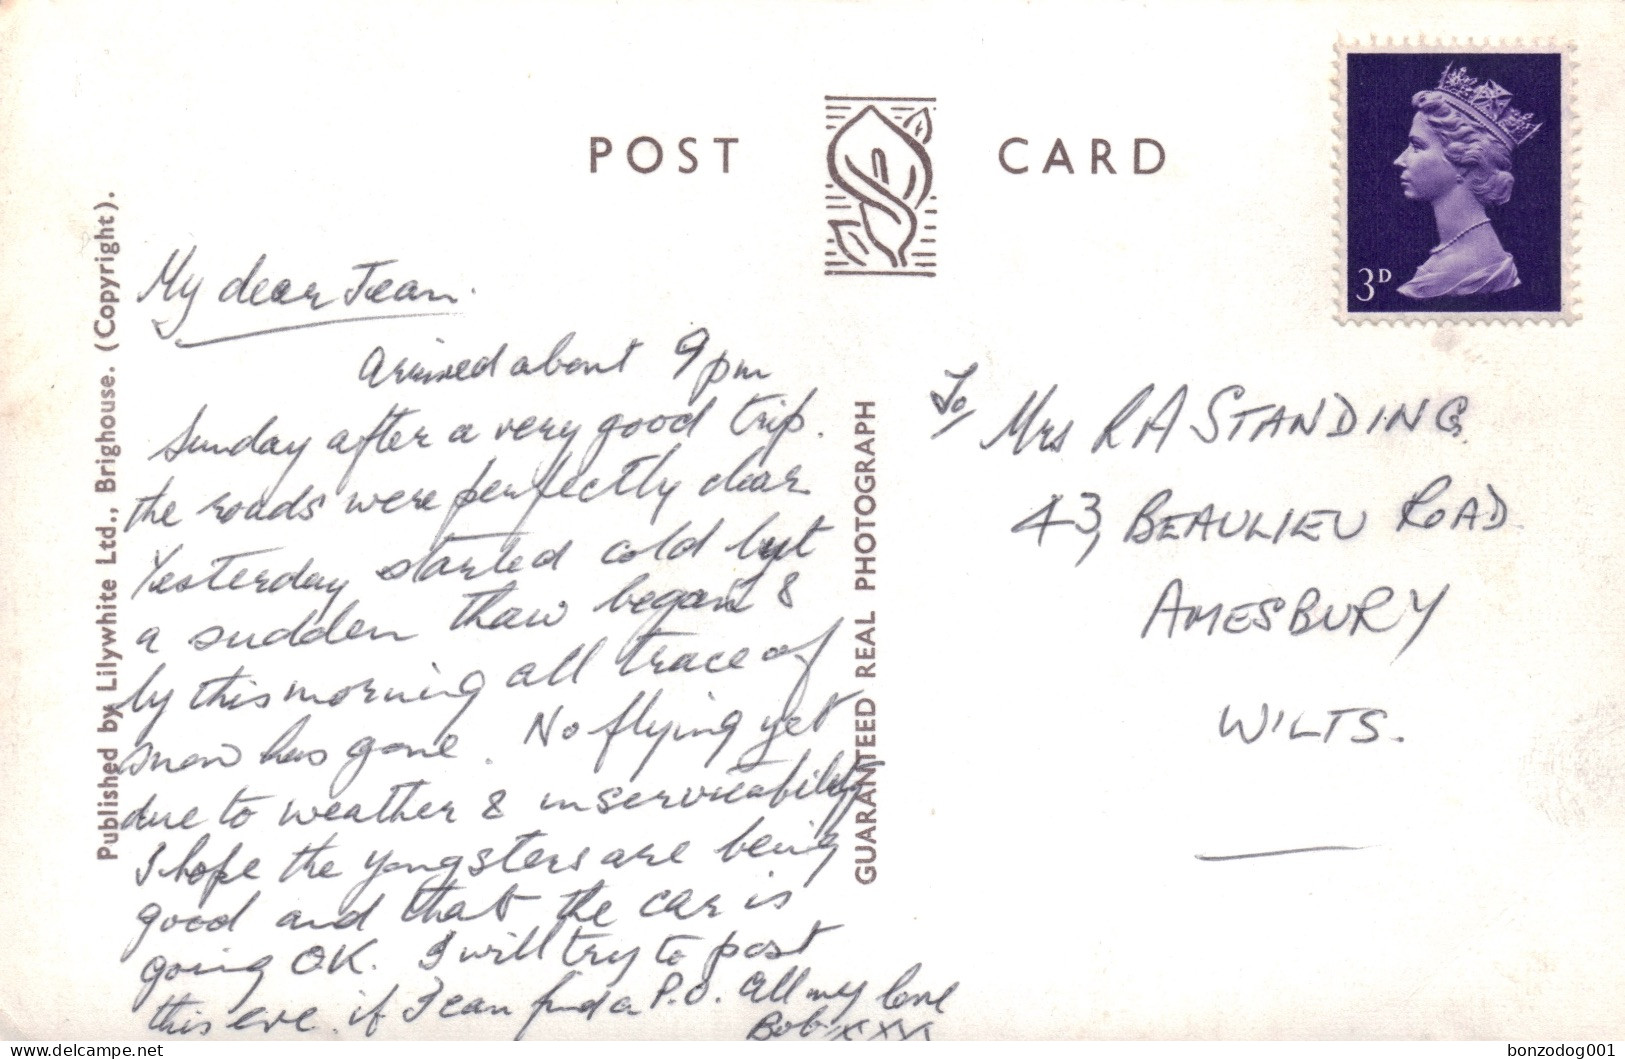 POST CARD
3D
Published by Lilywhite Ltd., Brighouse. (Copyright).
GUARANTEED REAL PHOTOGRAPH
My dear Jean.
Arrived about 9 pm
Sunday after a very good trip.
the roads were perfectly clear
Yesterday started cold but
a sudden thaw began &
by this morning all trace of
snow has gone. No flying yet
due to weather & unserviceability
I hope the yongsters are being
good and that the car is
going OK. I will try to post
this eve. if I can find a P.O. All my love
Bob xxxx
To/ Mrs R A STANDING
43, BEAULIEU ROAD
AMESBURY
WILTS.
delcampe.net
bonzodog001